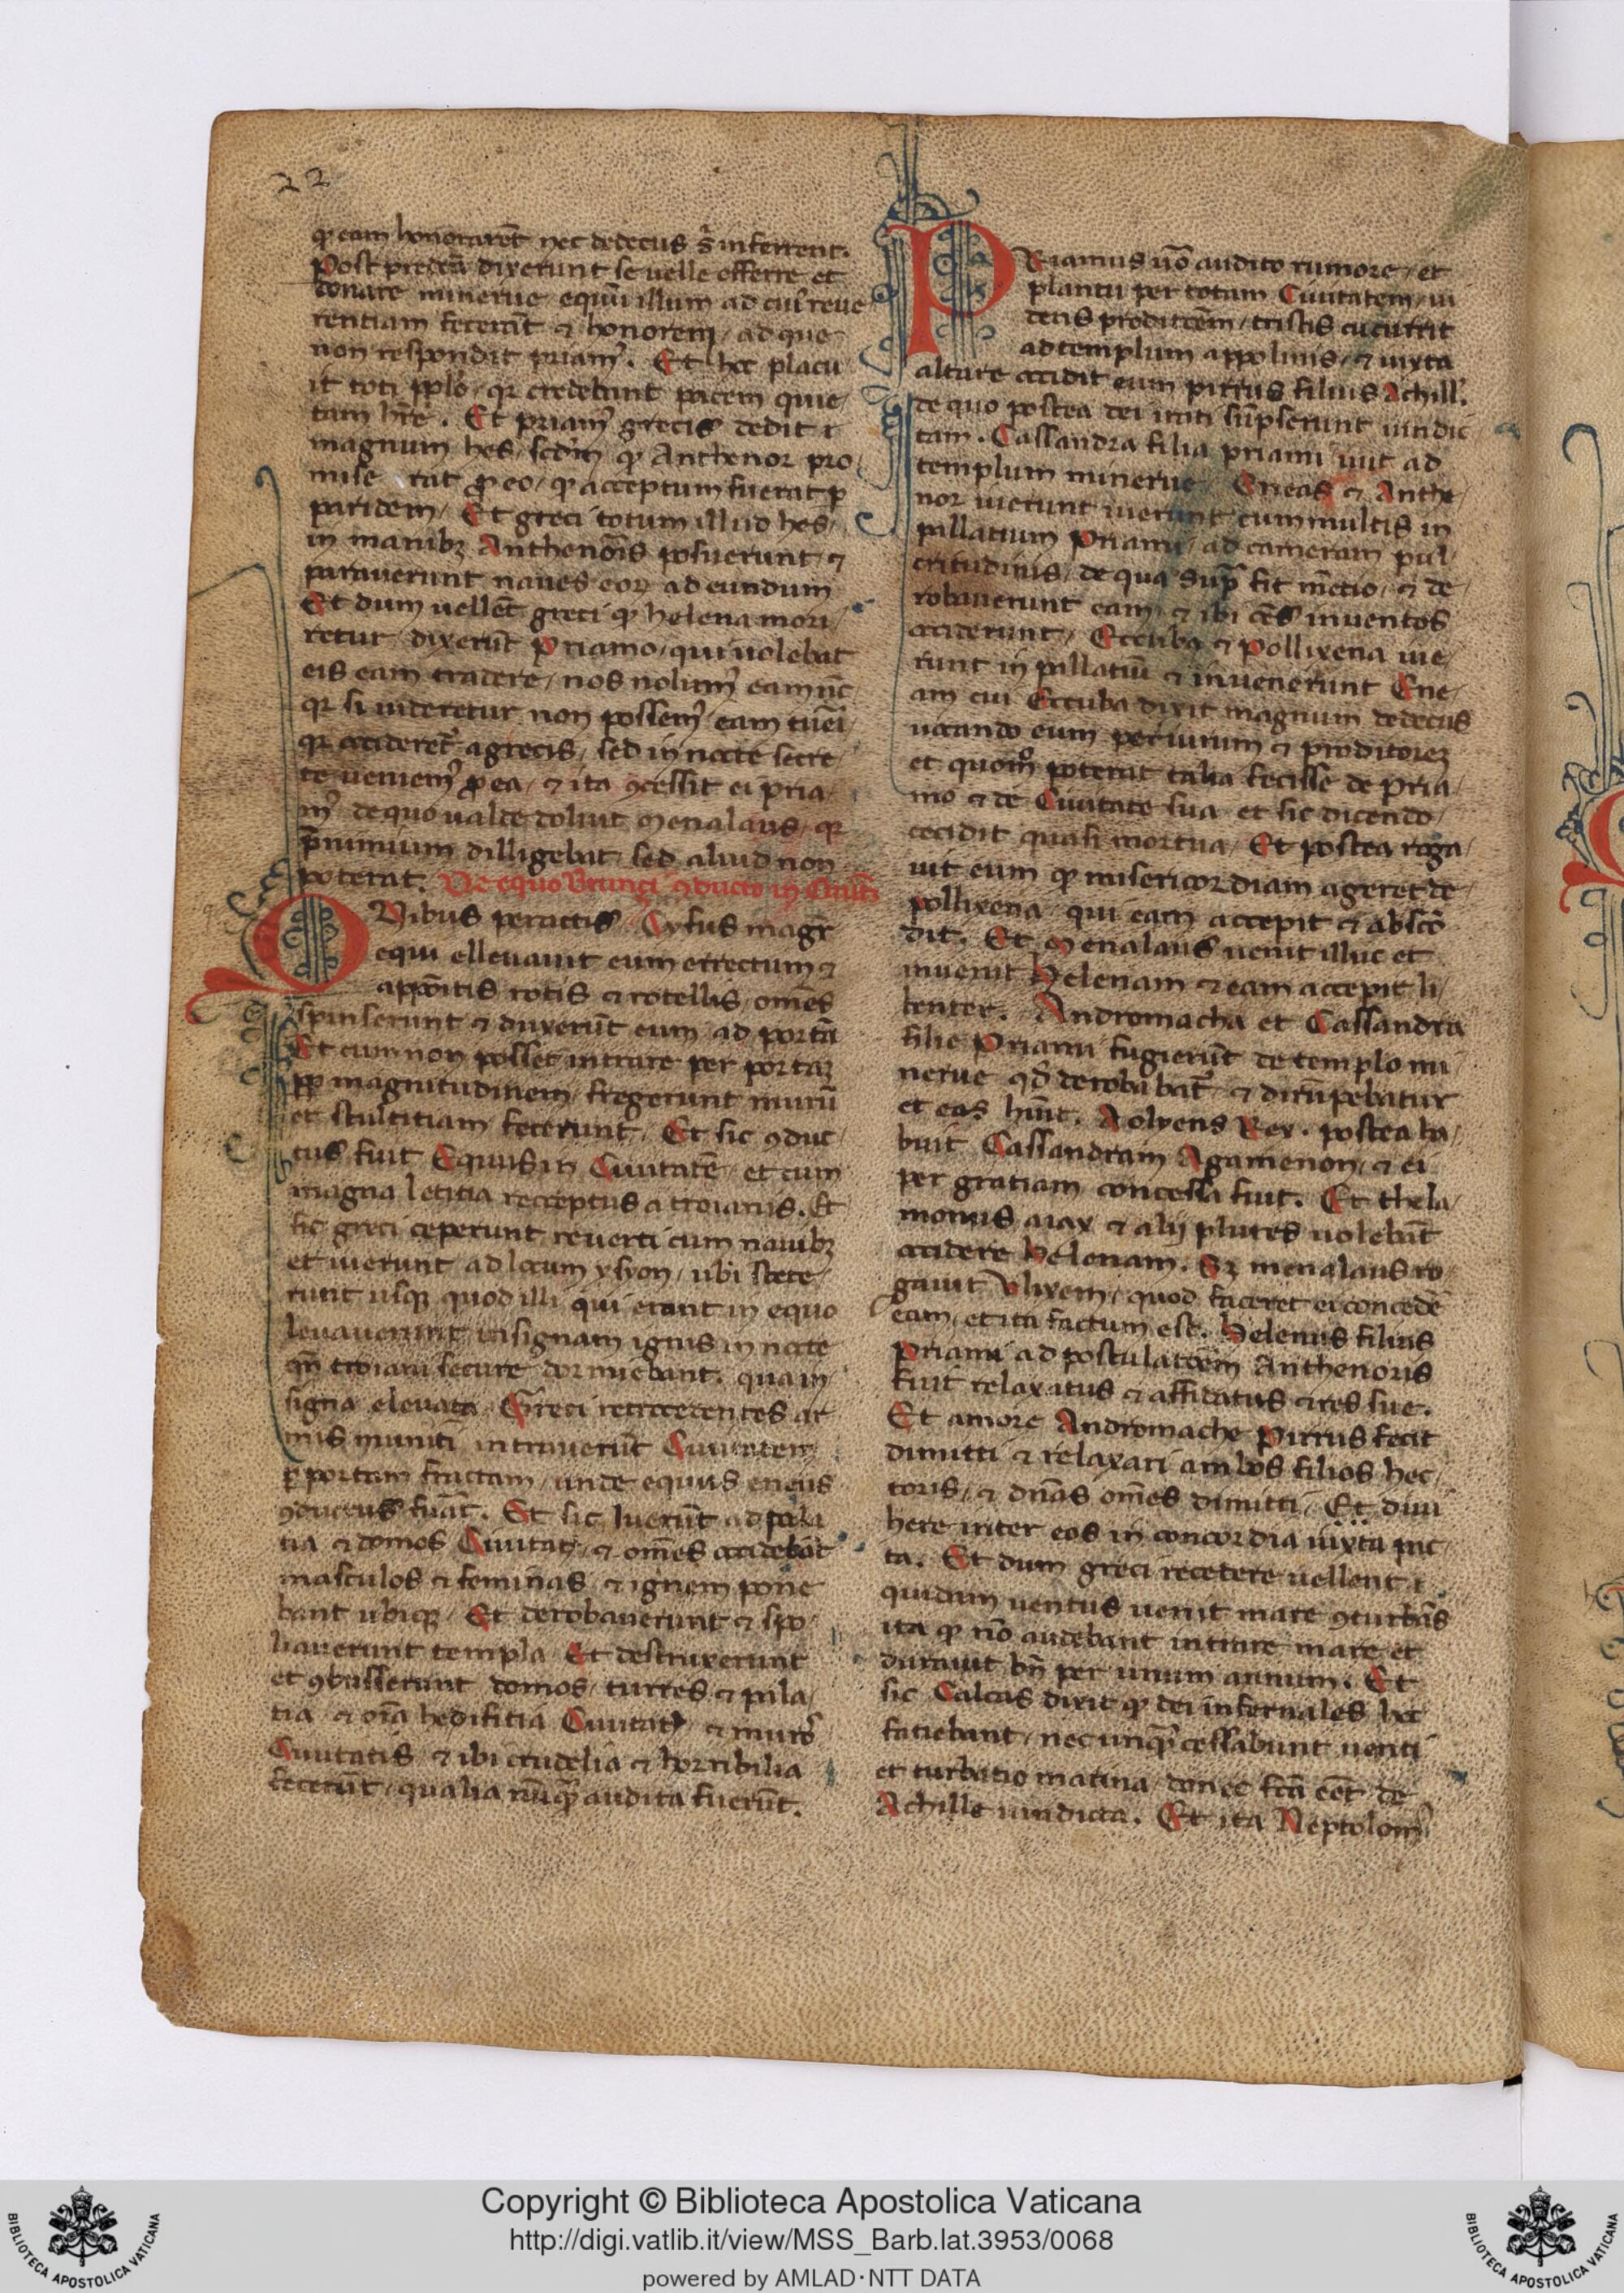 22
qͥ eam honorarēt nec dedecus s̄ inferrent.
Post predcā dixerunt se uelle offerre et
donare minerue equū illum ad cuiꝰ reue
rentiam fecerūt ⁊ honorem / ad que
non respondit priamꝰ. Et hec placu
it toti pplo / qꝛ credebant pacem quie
tam hr̄e. Et priamꝰ grecis dedit
magnum hes / scdm qͥ Anthenor pro
mise rat ꝓ eo / qͥ acceptum fuerat ꝑ
paridem / Et greci totum illud hes /
in manibꝫ Anthenoris posuerunt ⁊
parauerunt naues eoꝝ ad eundum
Et dum uellēt greci qͥ helena mori
retur / dixerūt Priamo / qui uolebat
eis eam tradere / nos nolumꝰ eam nūc
qꝛ si uideretur non possemꝰ eam tueri
qꝛ occideretᷣ a grecis / sed in nocte secre
te ueniemꝰ ꝓ ea / ⁊ ita ꝯcessit ei pria
mꝰ de quo ualde doluit Menalaus / qꝛ
p̄nimium dilligebat / sed aliud non
poterat. De equo Brunçi ꝯducto in Ciuitā
Quibus peractis / Cysus magr̄
equi elleuauit eum errectum ⁊
appōitis rotis ⁊ rotellis / om̄es
spinserunt ⁊ duxerūt eum ad portā
Et cum non posset intrare per portaꝫ
ꝓp magnitudinem / fregerunt murū
et stultitiam fecerunt / Et sic ꝯduc
tus fuit Equus in Ciuitatē / et cum
magna letitia recceptus a troianis. Et
sic greci ceperunt reuerti cum nauibꝫ
et iuerunt ad locum ysyon / ubi stete
runt usqꝫ quod illi qui erant in equo
leuauerunt insignam ignis in nocte
qn̄ troiani secure dormiebant. qua in
signa eleuata / Greci retrocedentes ar
mis muniti intrauerūt Ciuitatem
ꝑ portam fractam / unde equus eneus
ꝯductus fuāt. Et sic iuerūt ad pala
tia ⁊ domos Ciuitatꝭ / ⁊ om̄es occidebāt
masculos ⁊ feminas / ⁊ ignem pone
bant ubiqꝫ / Et derobauerunt ⁊ spo
liauerunt templa Et destruxerunt
et ꝯbusserunt domos / turres ⁊ pala
tia / ⁊ oīa hedifitia Ciuitatꝭ / ⁊ muros
Ciuitatis / ⁊ ibi crudelia ⁊ horribilia
fecerūt / qualia nūqᷓ audita fuerūt.
PRiamus uō audito rumore / et
plantu per totam Ciuitatem / ui
dens proditōem / tristis cucurrit
ad templum appolinis / ⁊ iuxta
altare occidit eum pirrus filius Achill'.
de quo postea dei inti sūpserunt uindic
tam. Cassandra filia priami iuit ad
templum minerue / Eneas ⁊ Anthe
nor iuerunt iuerunt cum multis in
pillatium Priami / ad cameram pul
critudinis / de qua supͣ fit mētio / ⁊ de
robauerunt eam / ⁊ ibi oēs inuentos
occiderunt / Eccuba ⁊ Pollixena iue
runt in pillatiū ⁊ inuenerunt Ene
am cui Eccuba dixit magnum dedecus
uocando eum periurum ⁊ proditoreꝫ
et quomͦ poterat talia fecisse de Pria
mo ⁊ de Ciuitate sua et sic dicendo /
cecidit quasi mortua / Et postea roga
uit eum qͥ misericordiam ageret de
pollixena / qui eam accepit ⁊ abscō
dit. Et Menalaus uenit illuc et
inuenit Helenam ⁊ eam accepit li
benter. Andromacha et Cassandra
filie Priami fugierūt de templo mi
nerue qd̄ derobabatᷣ ⁊ dirūpebatur
et eas hūit. Aolyens Rex. postea ha
buit Cassandram Agamenon / ⁊ ei
per gratiam concessa fuit. Et thela
monus aiax ⁊ alij plures uolebāt
occidere helenam. Sꝫ menalaus ro
gauit Vlixem / quod faceret ei concedē
eam / et ita factum est. Helenus filius
Priami ad postulatōem Anthenoris
fuit relaxatus ⁊ affidatus ⁊ res sue.
Et amore Andromache Pirrus fecit
dimitti ⁊ relaxari ambos filios hec
toris / ⁊ dnas om̄es dimitti / Et diui
here inter eos in concordia iuxta pac
ta. Et dum greci recedere uellent
quidam uentus uenit mare ꝯturbās
ita qͥ nō audebant intrare mare et
durauit bn̄ per unum annum. Et
sic Calcas dixit qͥ dei infernales hec
fatiebant / nec unqᷓ cessabunt uenti
et turbatio marina / donec fcā eēt de
Achille uindicta. Et ita Neptolomꝰ
Copyright © Biblioteca Apostolica Vaticana
http://digi.vatlib.it/view/MSS_Barb.lat.3953/0068
powered by AMLAD·NTT DATA
BIBLIOTECA APOSTOLICA VATICANA
BIBLIOTECA APOSTOLICA VATICANA